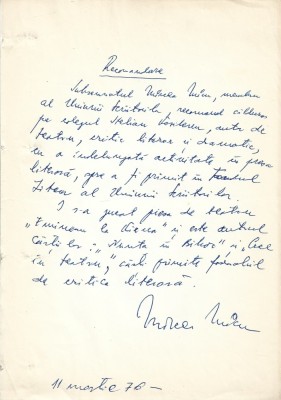 Recomandare
Subsemnatul Mircea Micu, membru
al Uniunii Scriitorilor, recomand călduros
pe colegul Stelian autor de
teatru, critic literar și dramatic,
cu o îndelungată activitate în presa
literară, spre a fi primit în
al Uniunii Scriitorilor.
I s-a jucat piesa de teatru
"Eminescu la Viena" și este autorul
cărților: "Nunta în Bihor" și
în teatru", cărți primite
de critica literară.
Mircea Micu
11 martie 76 -